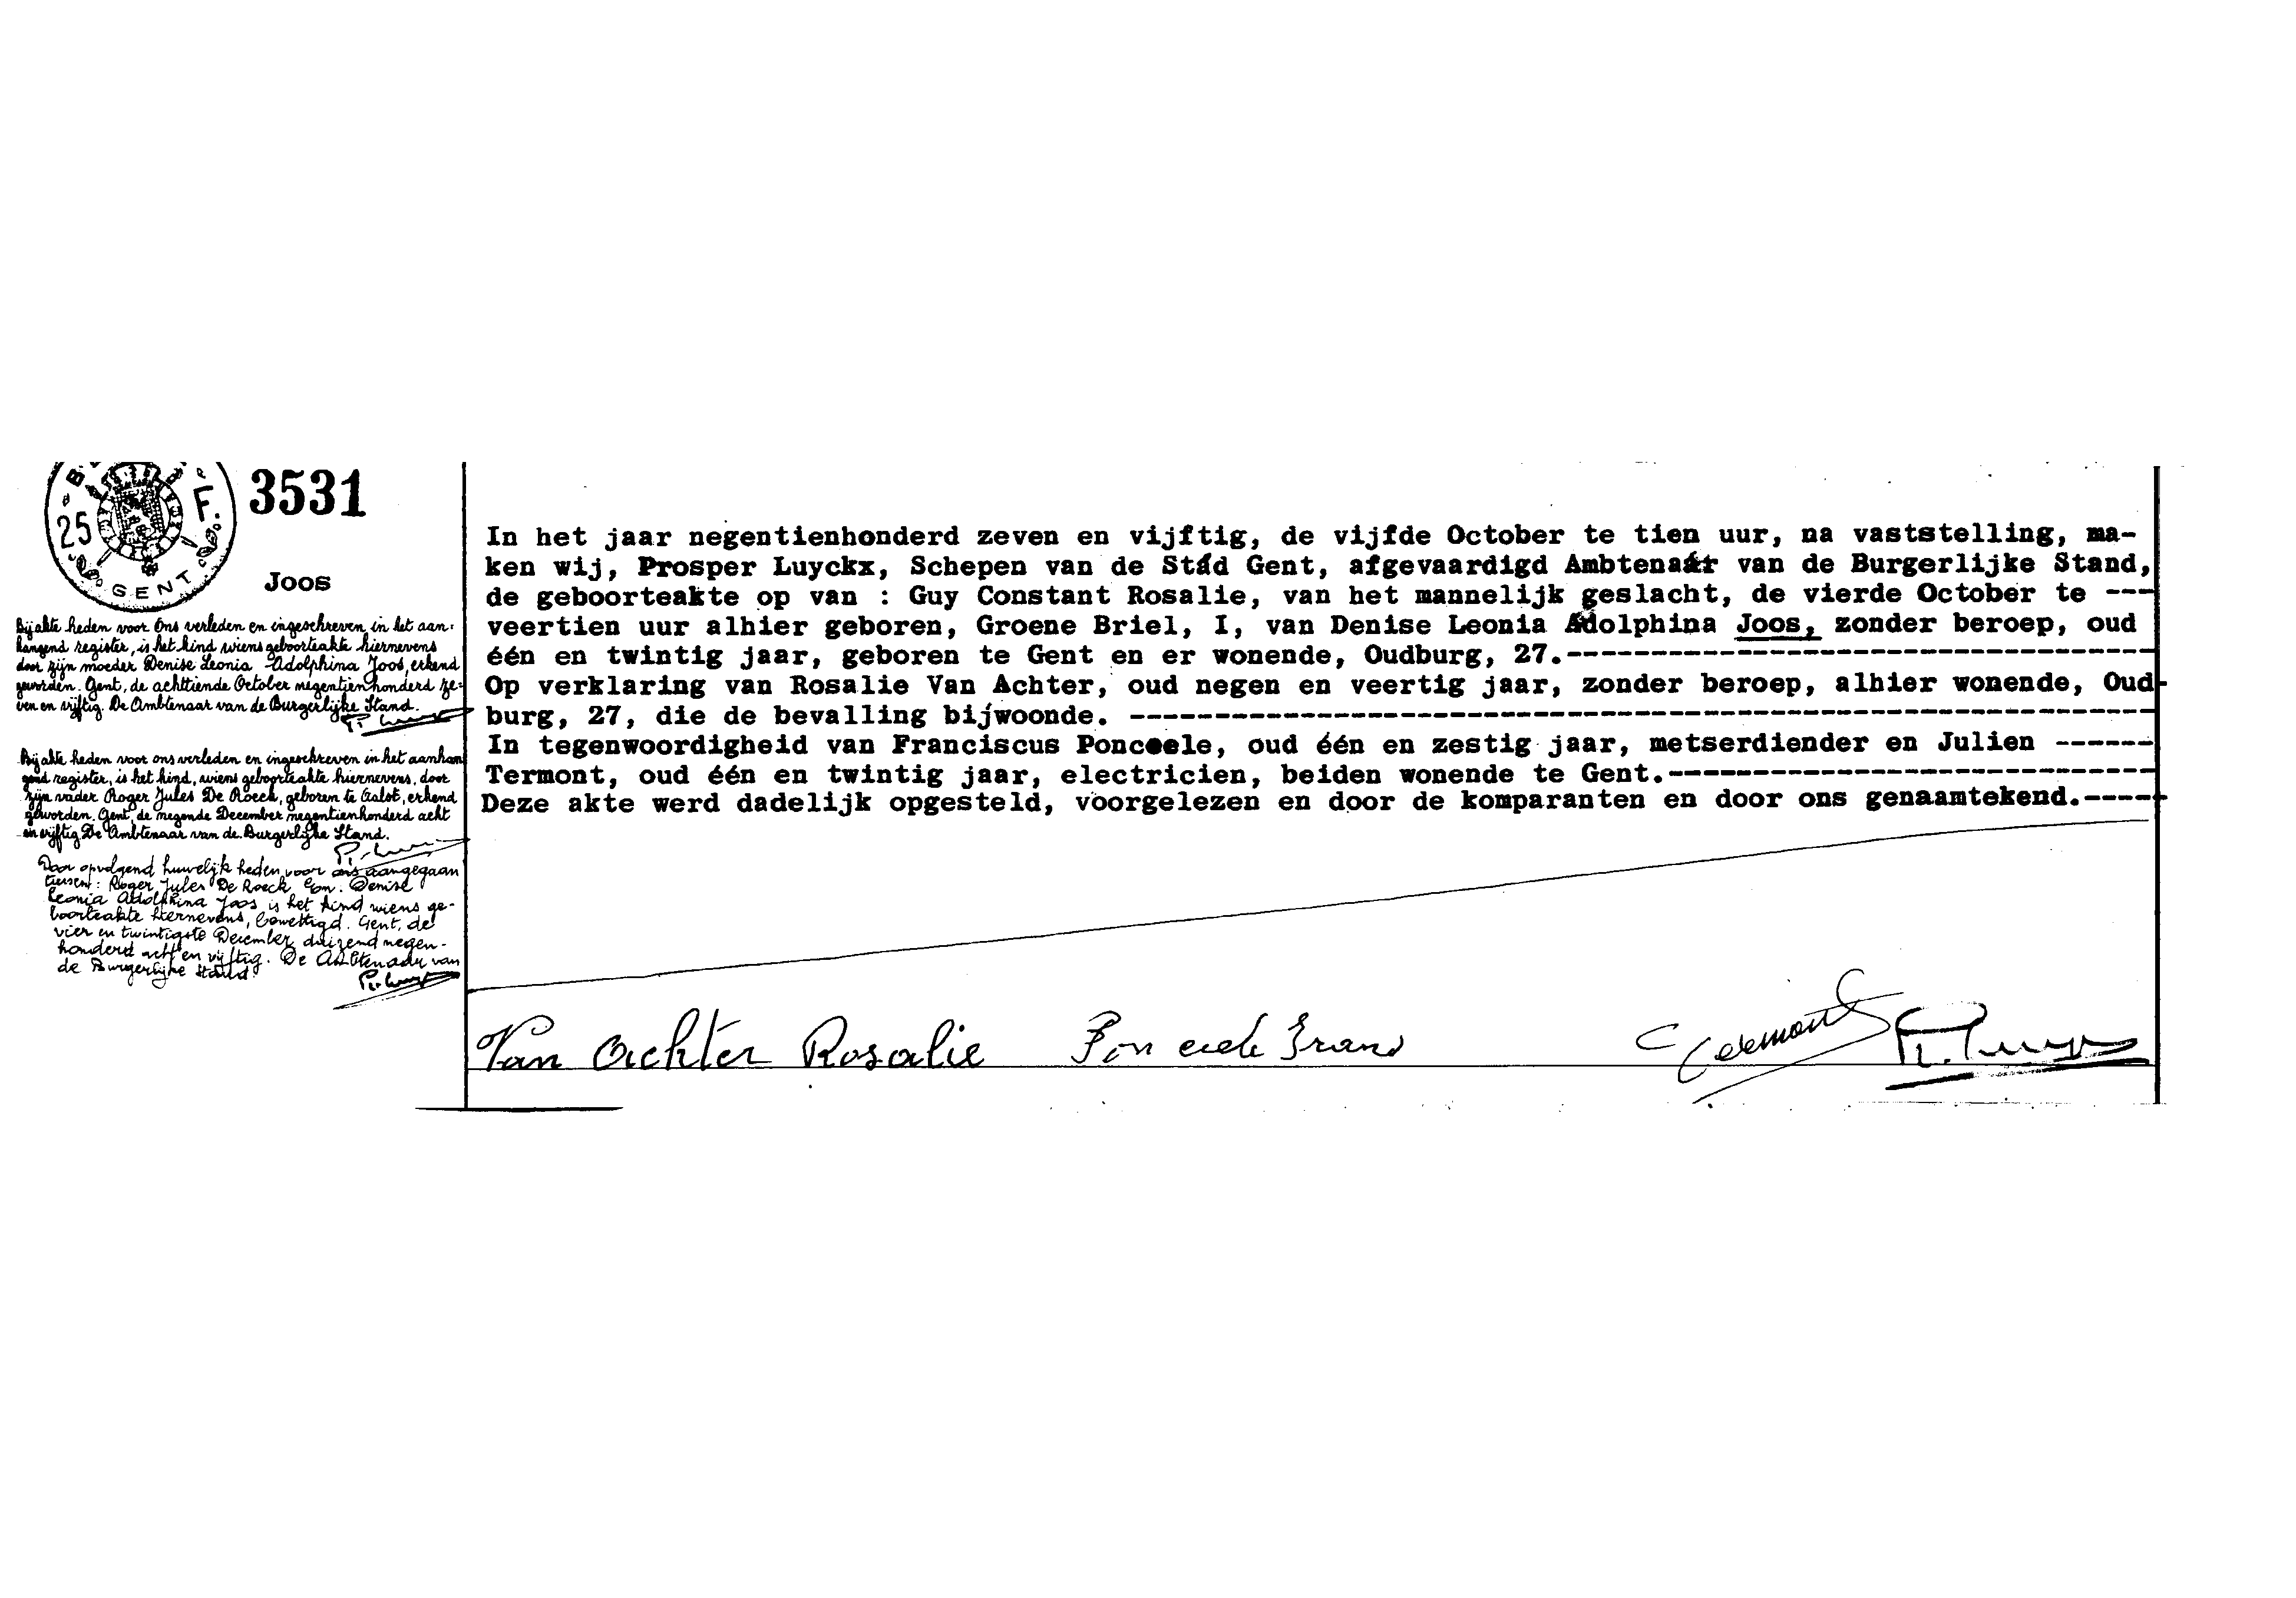 3531
25 F.
GENT
Joos
Bij akte heden voor Ons verleden en ingeschreven in het aan-
hangend register, is het kind wiens geboorteakte hiernevens
door zijn moeder Denise Leonia Adolphina Joos, erkend
geworden. Gent, de achttiende October negentienhonderd ze-
ven en vijftig. De Ambtenaar van de Burgerlijke Stand.
Bij akte heden voor ons verleden en ingeschreven in het aanhan
gend register, is het kind, wiens geboorteakte hiernevens, door
zijn vader Roger Jules De Roeck, geboren te Aalst, erkend
geworden. Gent, de negende December negentienhonderd acht
en vijftig De Ambtenaar van de Burgerlijke Stand.
Door opvolgend huwelijk heden voor ons aangegaan
tussen: Roger Jules De Roeck en. Denise
Leonia Adolphina Joos is het kind wiens ge-
boorteakte hiernevens, bewettigd. Gent, de
vier en twintigste December duizend negen-
honderd acht en vijftig. De Ambtenaar van
de Burgerlijke Stand.
In het jaar negentienhonderd zeven en vijftig, de vijfde October te tien uur, na vaststelling, ma-
ken wij, Prosper Luyckx, Schepen van de Stad Gent, afgevaardigd Ambtenaar van de Burgerlijke Stand,
de geboorteakte op van : Guy Constant Rosalie, van het mannelijk geslacht, de vierde October te ---
veertien uur alhier geboren, Groene Briel, I, van Denise Leonia Adolphina Joos, zonder beroep, oud
één en twintig jaar, geboren te Gent en er wonende, Oudburg, 27.-----------------------------------
Op verklaring van Rosalie Van Achter, oud negen en veertig jaar, zonder beroep, alhier wonende, Oud-
burg, 27, die de bevalling bijwoonde. -------------------------------------------------------------
In tegenwoordigheid van Franciscus Ponceele, oud één en zestig jaar, metserdiender en Julien ------
Termont, oud één en twintig jaar, electricien, beiden wonende te Gent.-----------------------------
Deze akte werd dadelijk opgesteld, voorgelezen en door de komparanten en door ons genaamtekend.-----
Van Achter Rosalie Ponceele Frans Termont